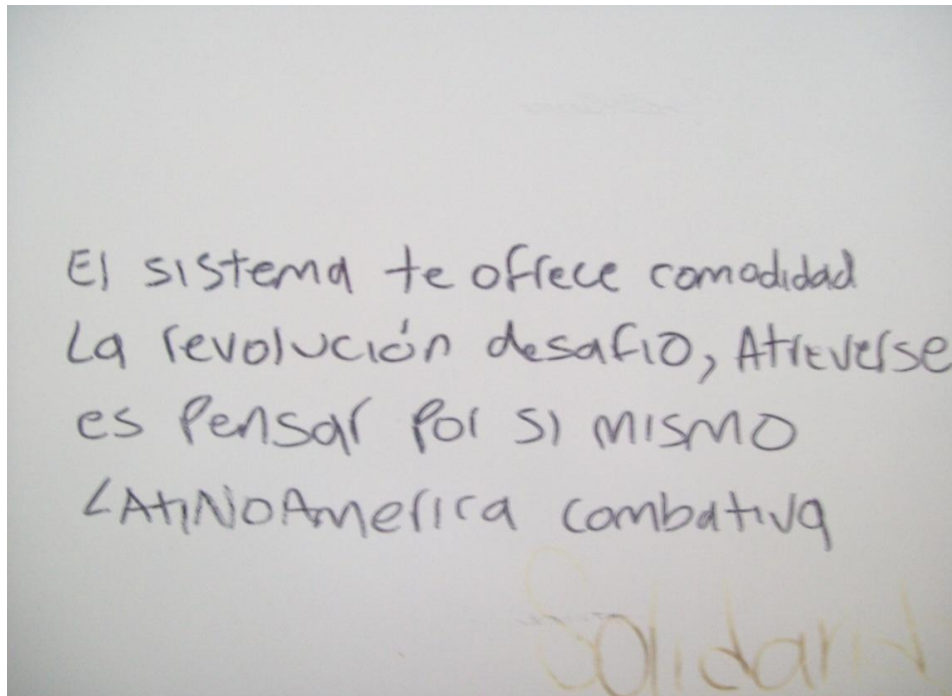 El sistema te ofrece comodidad
La revolución desafio, Atreverse
es Pensar Por si mismo
LAtiNoAmerica combativa
Solidarid